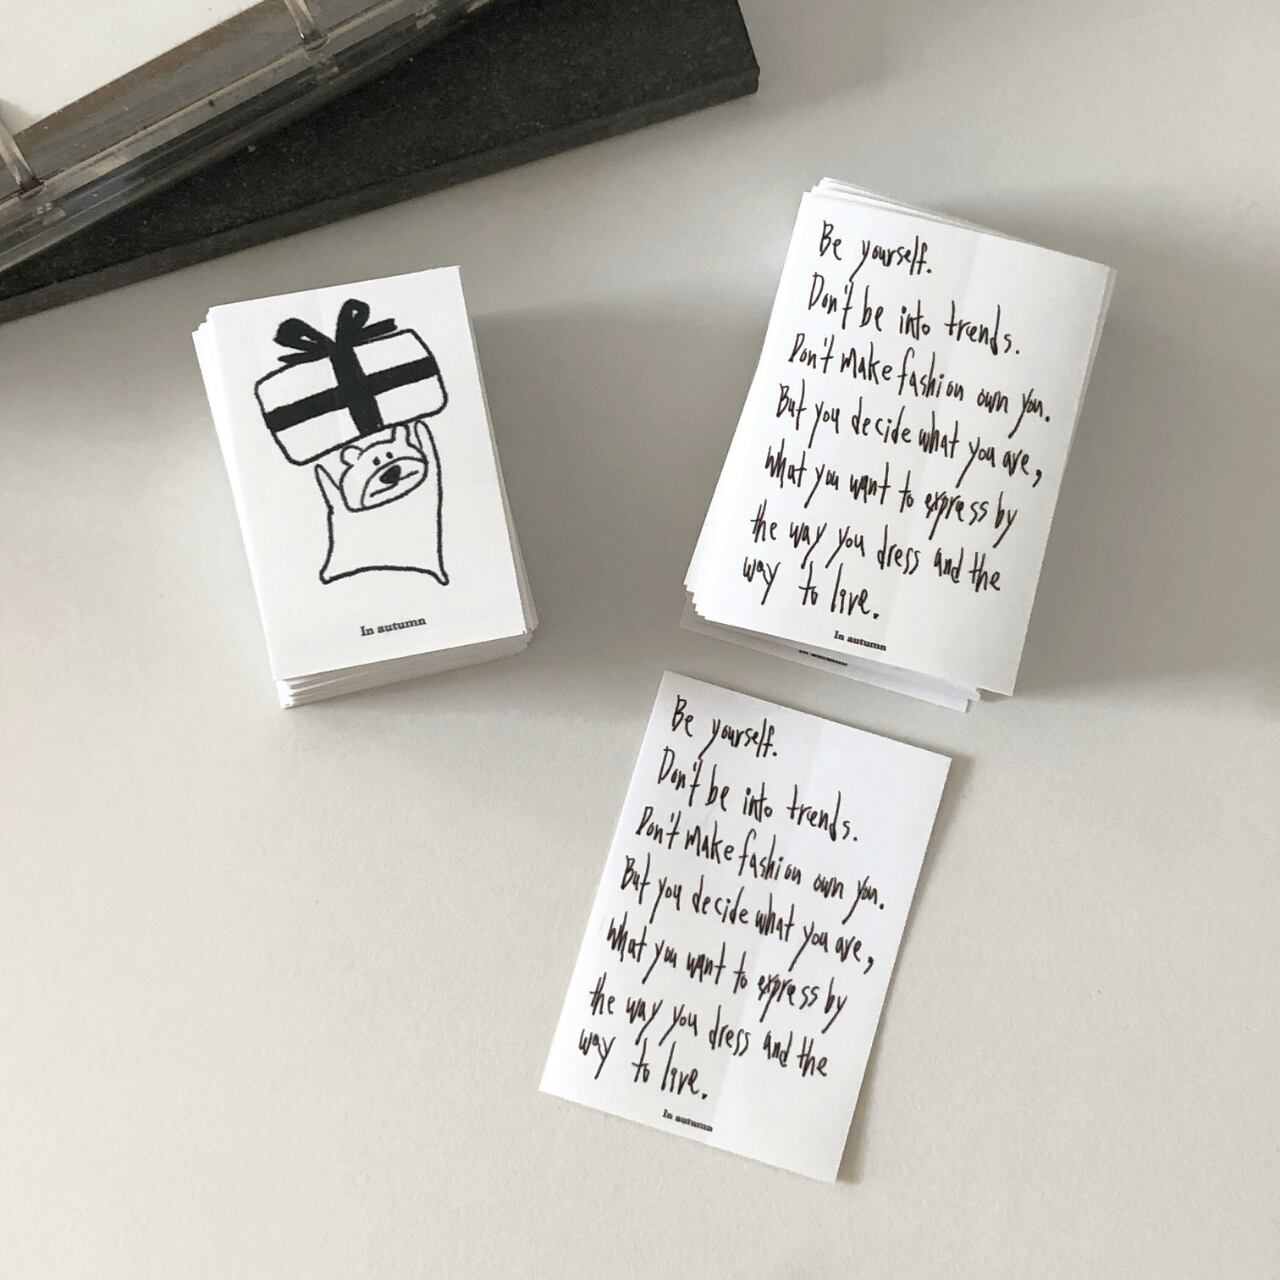 In autumn
Be yourself.
Don't be into trends.
Don't make fashion own you.
But you decide what you are,
what you want to express by
the way you dress and the
way to live.
In autumn
Be yourself.
Don't be into trends.
Don't make fashion own you.
But you decide what you are,
what you want to express by
the way you dress and the
way to live.
In autumn